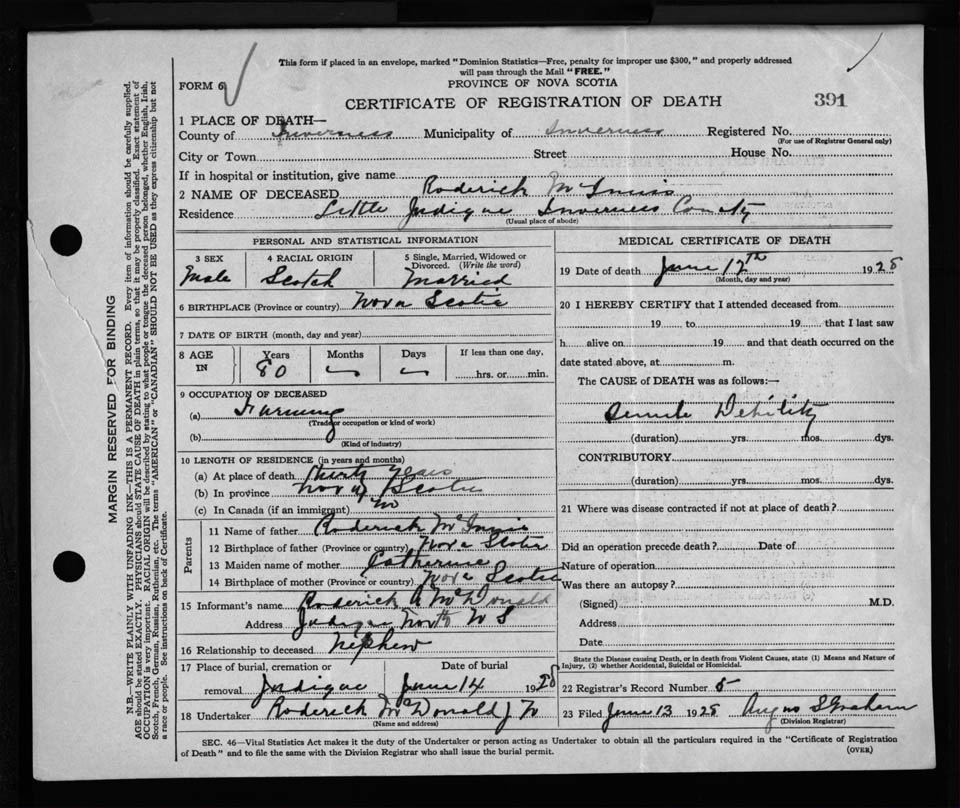 This form if placed in an envelope, marked "Dominion Statistics—Free, penalty for improper use $300," and properly addressed
will pass through the Mail "FREE."
FORM 6
PROVINCE OF NOVA SCOTIA
CERTIFICATE OF REGISTRATION OF DEATH
391
1 PLACE OF DEATH—
County of Inverness Municipality of Inverness Registered No.
(For use of Registrar General only)
City or Town Street House No.
If in hospital or institution, give name
2 NAME OF DECEASED Roderick McInnis
Residence Little Judique Inverness County
(Usual place of abode)
PERSONAL AND STATISTICAL INFORMATION
3 SEX 4 RACIAL ORIGIN 5 Single, Married, Widowed or
Divorced. (Write the word)
Male Scotch Married
6 BIRTHPLACE (Province or country) Nova Scotia
7 DATE OF BIRTH (month, day and year)
8 AGE Years Months Days If less than one day,
IN 80 hrs. or min.
9 OCCUPATION OF DECEASED
(a) Farming
(Trade or occupation or kind of work)
(b)
(Kind of industry)
10 LENGTH OF RESIDENCE (in years and months)
(a) At place of death Thirty years
(b) In province Nova Scotia
(c) In Canada (if an immigrant) No
Parents
11 Name of father Roderick McInnis
12 Birthplace of father (Province or country) Nova Scotia
13 Maiden name of mother Catherine
14 Birthplace of mother (Province or country) Nova Scotia
15 Informant's name Roderick A McDonald
Address Judique North N S
16 Relationship to deceased Nephew
17 Place of burial, cremation or Date of burial
removal Judique June 14 1928
18 Undertaker Roderick McDonald J N
(Name and address)
MEDICAL CERTIFICATE OF DEATH
19 Date of death June 12th 1928
(Month, day and year)
20 I HEREBY CERTIFY that I attended deceased from
19 to 19 that I last saw
h alive on 19 and that death occurred on the
date stated above, at m.
The CAUSE of DEATH was as follows:—
Senile Debility
(duration) yrs. mos. dys.
CONTRIBUTORY
(duration) yrs. mos. dys.
21 Where was disease contracted if not at place of death?
Did an operation precede death? Date of
Nature of operation
Was there an autopsy?
(Signed) M.D.
Address
Date
State the Disease causing Death, or in death from Violent Causes, state (1) Means and Nature of
Injury, (2) whether Accidental, Suicidal or Homicidal.
22 Registrar's Record Number 5
23 Filed June 13 1928 Angus S Graham
(Division Registrar)
SEC. 46—Vital Statistics Act makes it the duty of the Undertaker or person acting as Undertaker to obtain all the particulars required in the "Certificate of Registration
of Death" and to file the same with the Division Registrar who shall issue the burial permit.
(OVER)
MARGIN RESERVED FOR BINDING
N.B.—WRITE PLAINLY WITH UNFADING INK—THIS IS A PERMANENT RECORD. Every item of information should be carefully supplied.
AGE should be stated EXACTLY. PHYSICIANS should STATE CAUSE OF DEATH in plain terms, so that it may be properly classified. Exact statement of
OCCUPATION is very important. RACIAL ORIGIN will be described by stating to what people or tongue the deceased person belonged, whether English, Irish,
Scotch, French, German, Russian, Ruthenian, etc. The terms "AMERICAN" or "CANADIAN" SHOULD NOT BE USED as they express citizenship but not
a race or people. See instructions on back of Certificate.